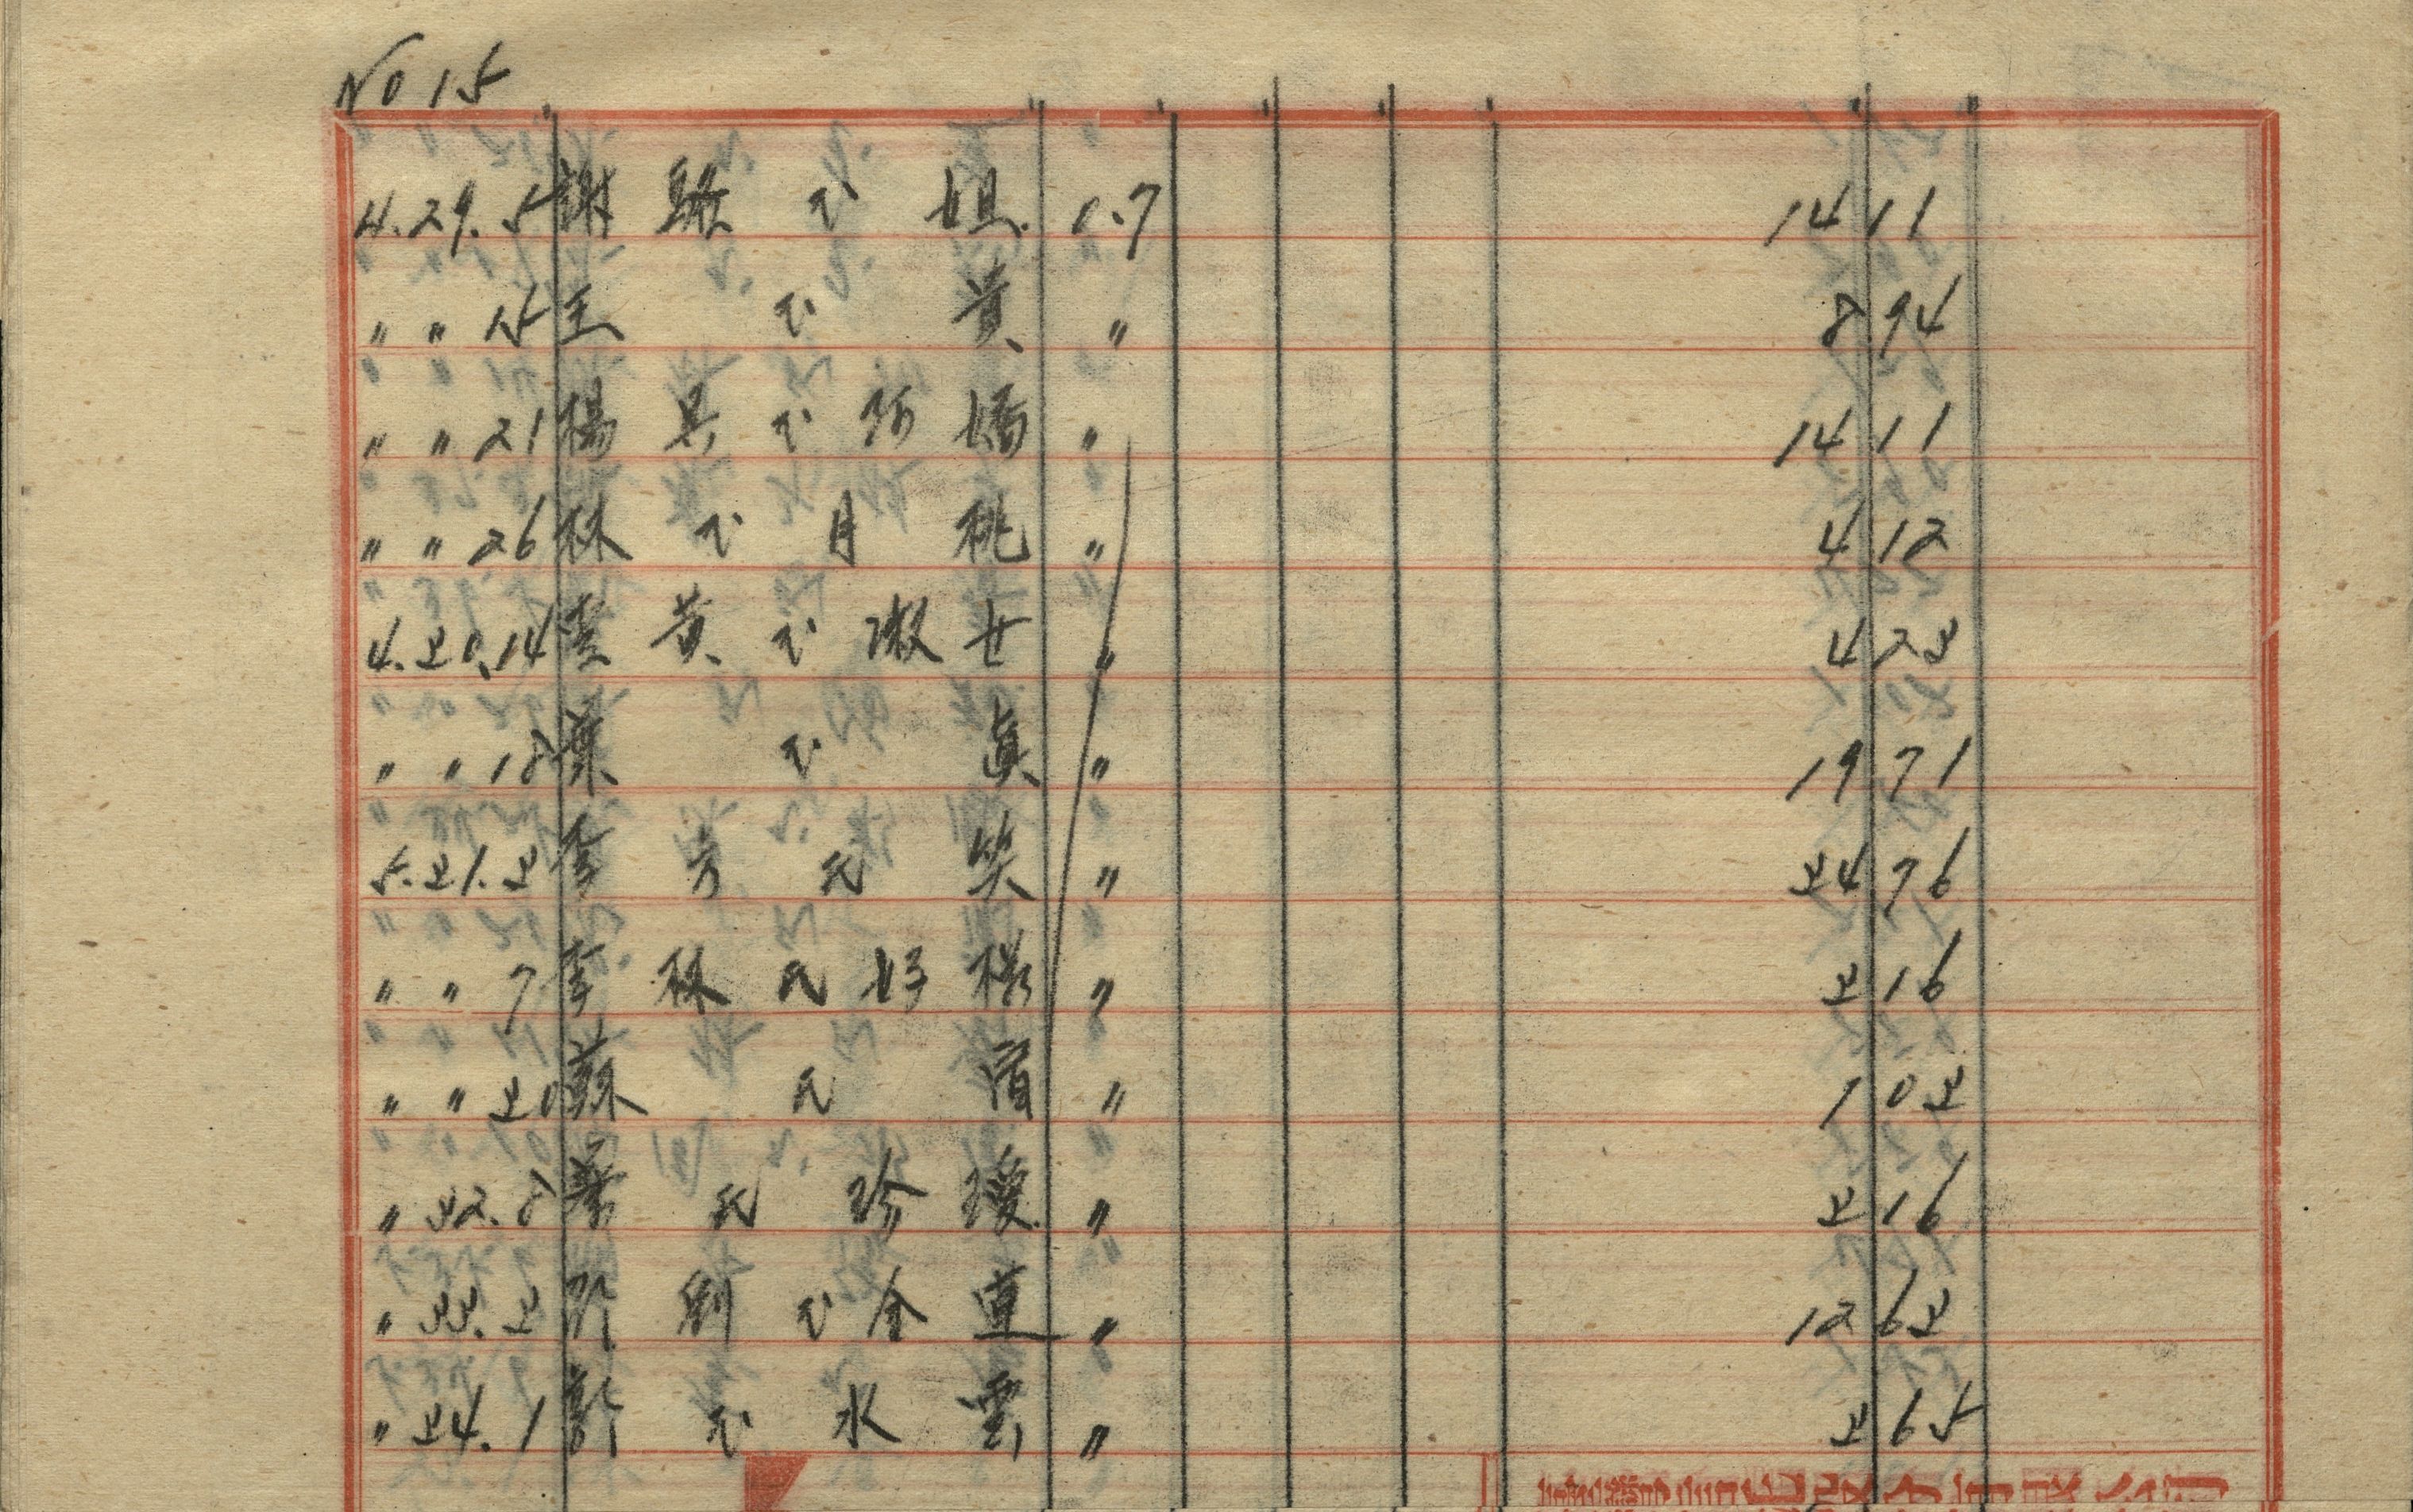 No 15
4.29.5 謝 氏 姐 0.7 14 11
〃 〃 15 王 氏 黃 〃 8 94
〃 〃 21 楊 吳 氏 阿 嬌 〃 14 11
〃 〃 26 林 氏 月 桃 〃 4 12
4.30.14 李 黃 氏 淑 女 〃 4 23
〃 〃 18 葉 氏 真 〃 19 71
5.31.3 李 方 氏 笑 〃 34 76
〃 〃 7 李 林 氏 好 〃 3 16
〃 〃 30 蘇 氏 〃 1 03
〃 32.8 葉 氏 珍 瓊 〃 3 16
〃 33.3 許 劉 氏 金 蓮 〃 12 63
〃 34.1 彭 氏 水 雲 〃 3 65